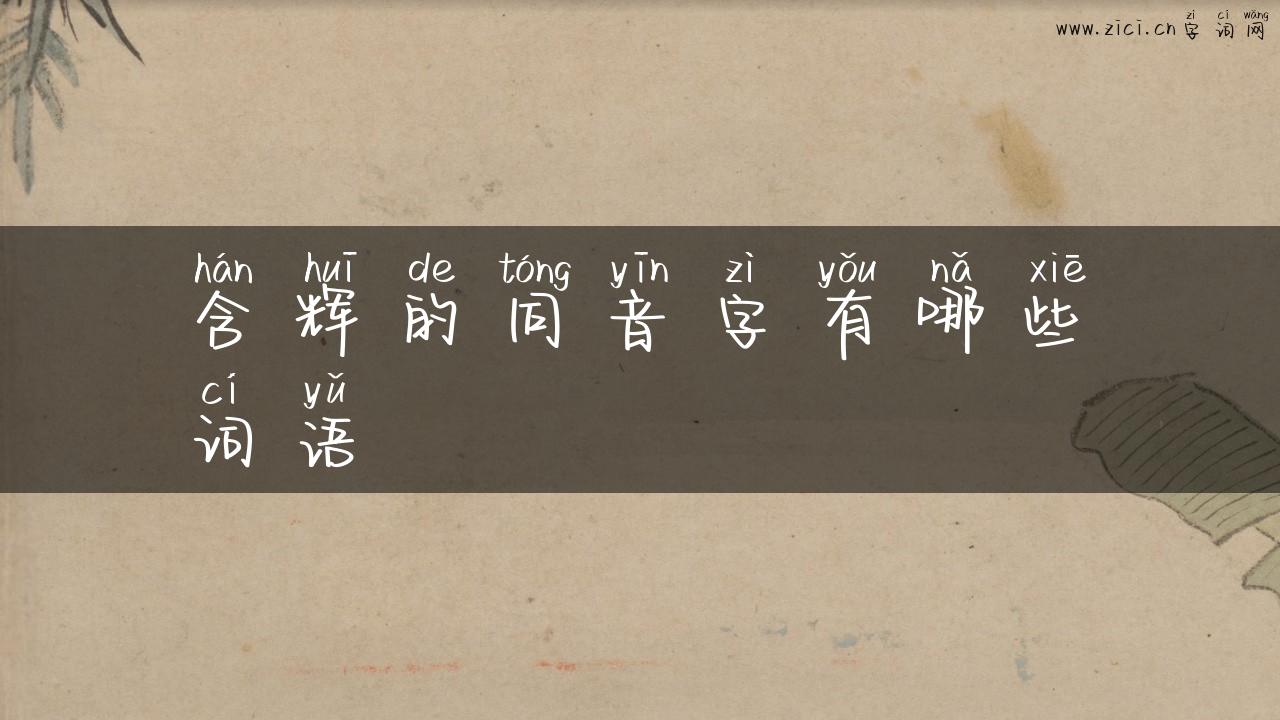 zì cí wǎng
www.zici.cn 字词网
hán huī de tóng yīn zì yǒu nǎ xiē
含辉的同音字有哪些
cí yǔ
词语